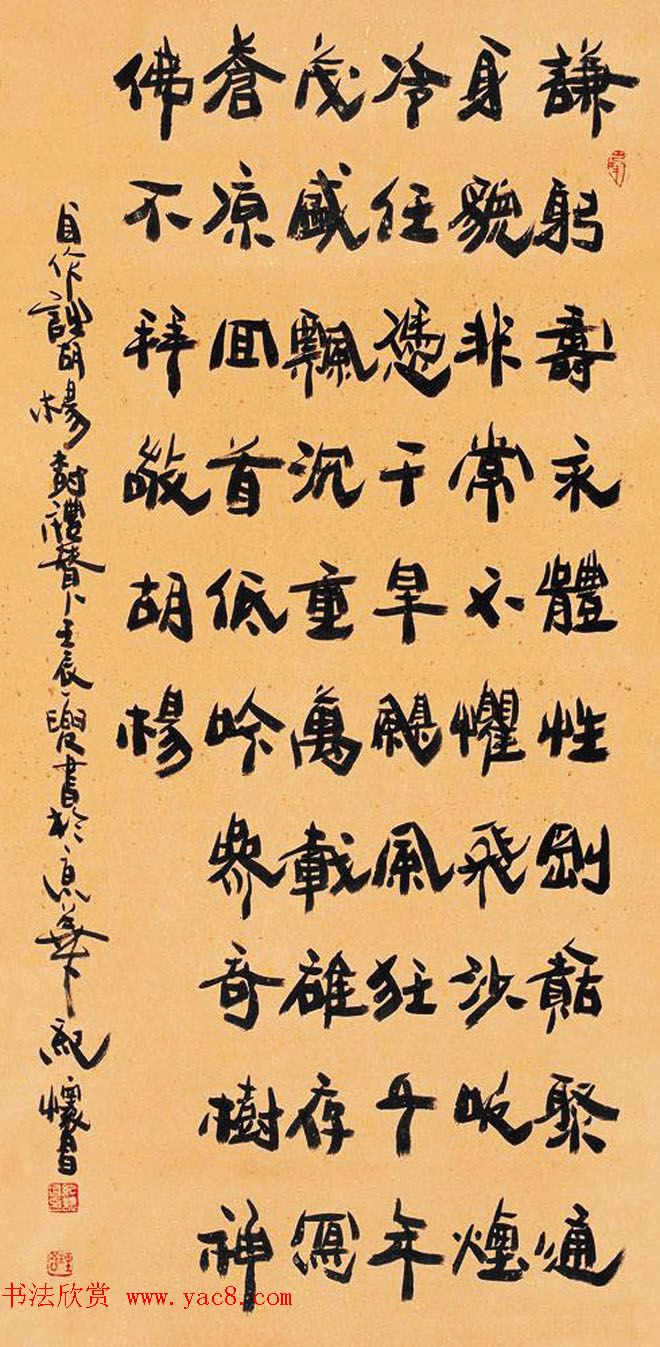 謙躬壽永體性剛聚通
身貌非常不懼飛沙煙
冷任憑干旱颶風狂千年
茂盛飄沉重萬載雄存寫
蒼凉回首低吟參奇樹神
佛不拜敬胡楊
自作胡楊樹禮贊壬辰夏書於京華下紀懷昌
书法欣赏 www.yac8.com